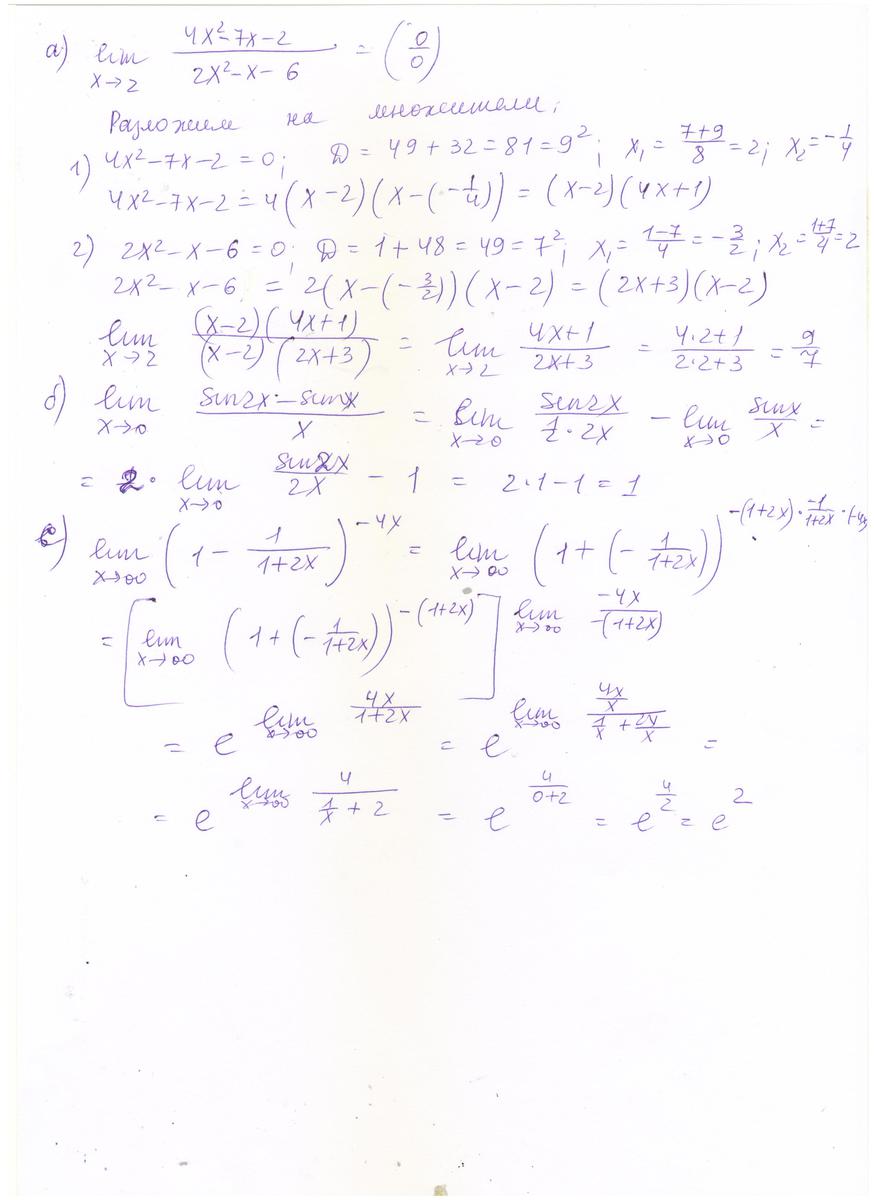 а) lim x→2 (4x²-7x-2)/(2x²-x-6) = (0/0)
Разложим на множители;
1) 4x²-7x-2=0; D = 49+32=81=9²; x₁= (7+9)/8 =2; x₂=-1/4
4x²-7x-2=4(x-2)(x-(-1/4)) = (x-2)(4x+1)
2) 2x²-x-6=0; D = 1+48=49=7²; x₁= (1-7)/4 = -3/2; x₂= (1+7)/4 =2
2x²-x-6 = 2(x-(-3/2))(x-2) = (2x+3)(x-2)
lim x→2 (x-2)(4x+1)/(x-2)(2x+3) = lim x→2 (4x+1)/(2x+3) = (4·2+1)/(2·2+3) = 9/7
б) lim x→0 (sin2x - sinx)/x = lim x→0 sin2x/(1/2·2x) - lim x→0 sinx/x =
= 2· lim x→0 sin2x/2x - 1 = 2·1-1=1
lim x→∞ (1 - 1/(1+2x))^(-4x) = lim x→∞ (1+(-1/(1+2x)))^(-(1+2x)· -1/(1+2x) ·(-4x
= [lim x→∞ (1+(-1/(1+2x)))^(-(1+2x))] lim x→∞ -4x/-(1+2x)
= e^(lim x→∞ 4x/(1+2x)) = e^(lim x→∞ (4x/x)/(1/x + 2x/x)) =
= e^(lim x→∞ 4/(1/x + 2)) = e^(4/(0+2)) = e^(4/2) = e²